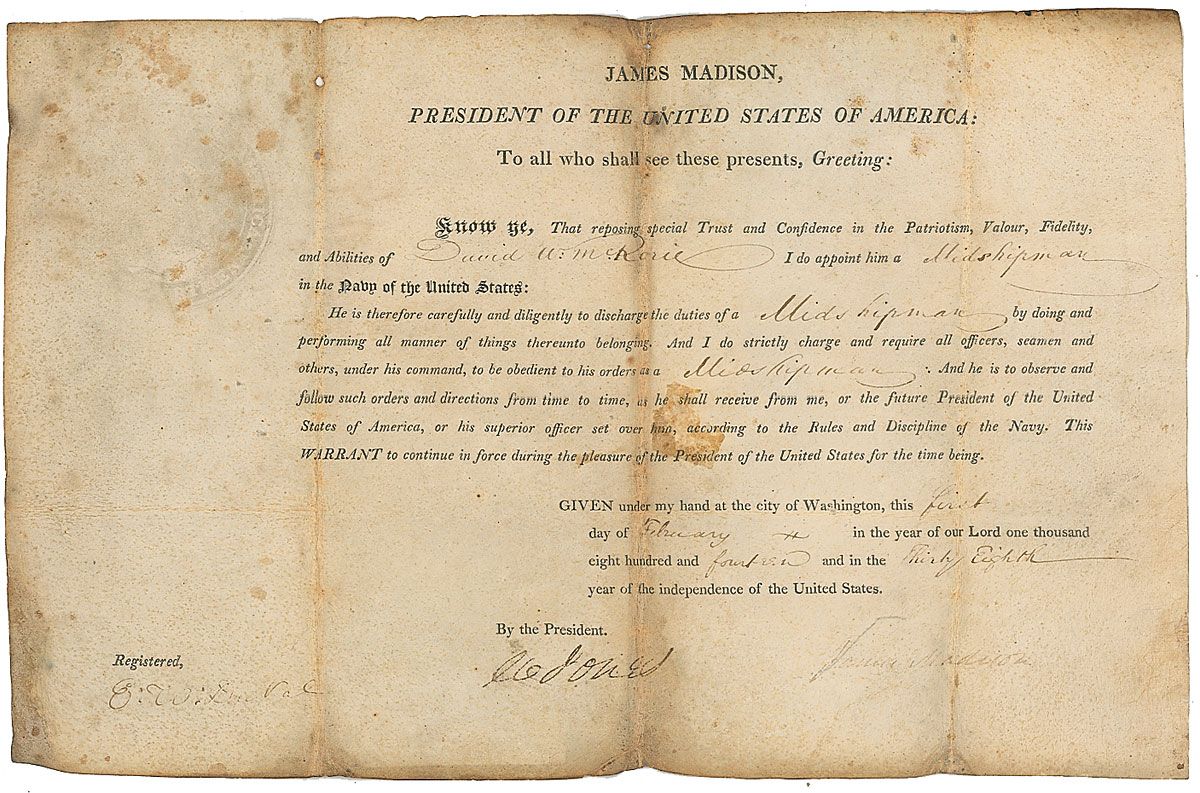 JAMES MADISON,
PRESIDENT OF THE UNITED STATES OF AMERICA:
To all who shall see these presents, Greeting:
Know ye, That reposing special Trust and Confidence in the Patriotism, Valour, Fidelity,
and Abilities of David Wm. McRorie I do appoint him a Midshipman
in the Navy of the United States:
He is therefore carefully and diligently to discharge the duties of a Midshipman by doing and
performing all manner of things thereunto belonging. And I do strictly charge and require all officers, seamen and
others, under his command, to be obedient to his orders as a Midshipman : And he is to observe and
follow such orders and directions from time to time, as he shall receive from me, or the future President of the United
States of America, or his superior officer set over him, according to the Rules and Discipline of the Navy. This
WARRANT to continue in force during the pleasure of the President of the United States for the time being.
GIVEN under my hand at the city of Washington, this first
day of February in the year of our Lord one thousand
eight hundred and fourteen and in the Thirty Eighth
year of the independence of the United States.
By the President.
W Jones
James Madison
Registered,